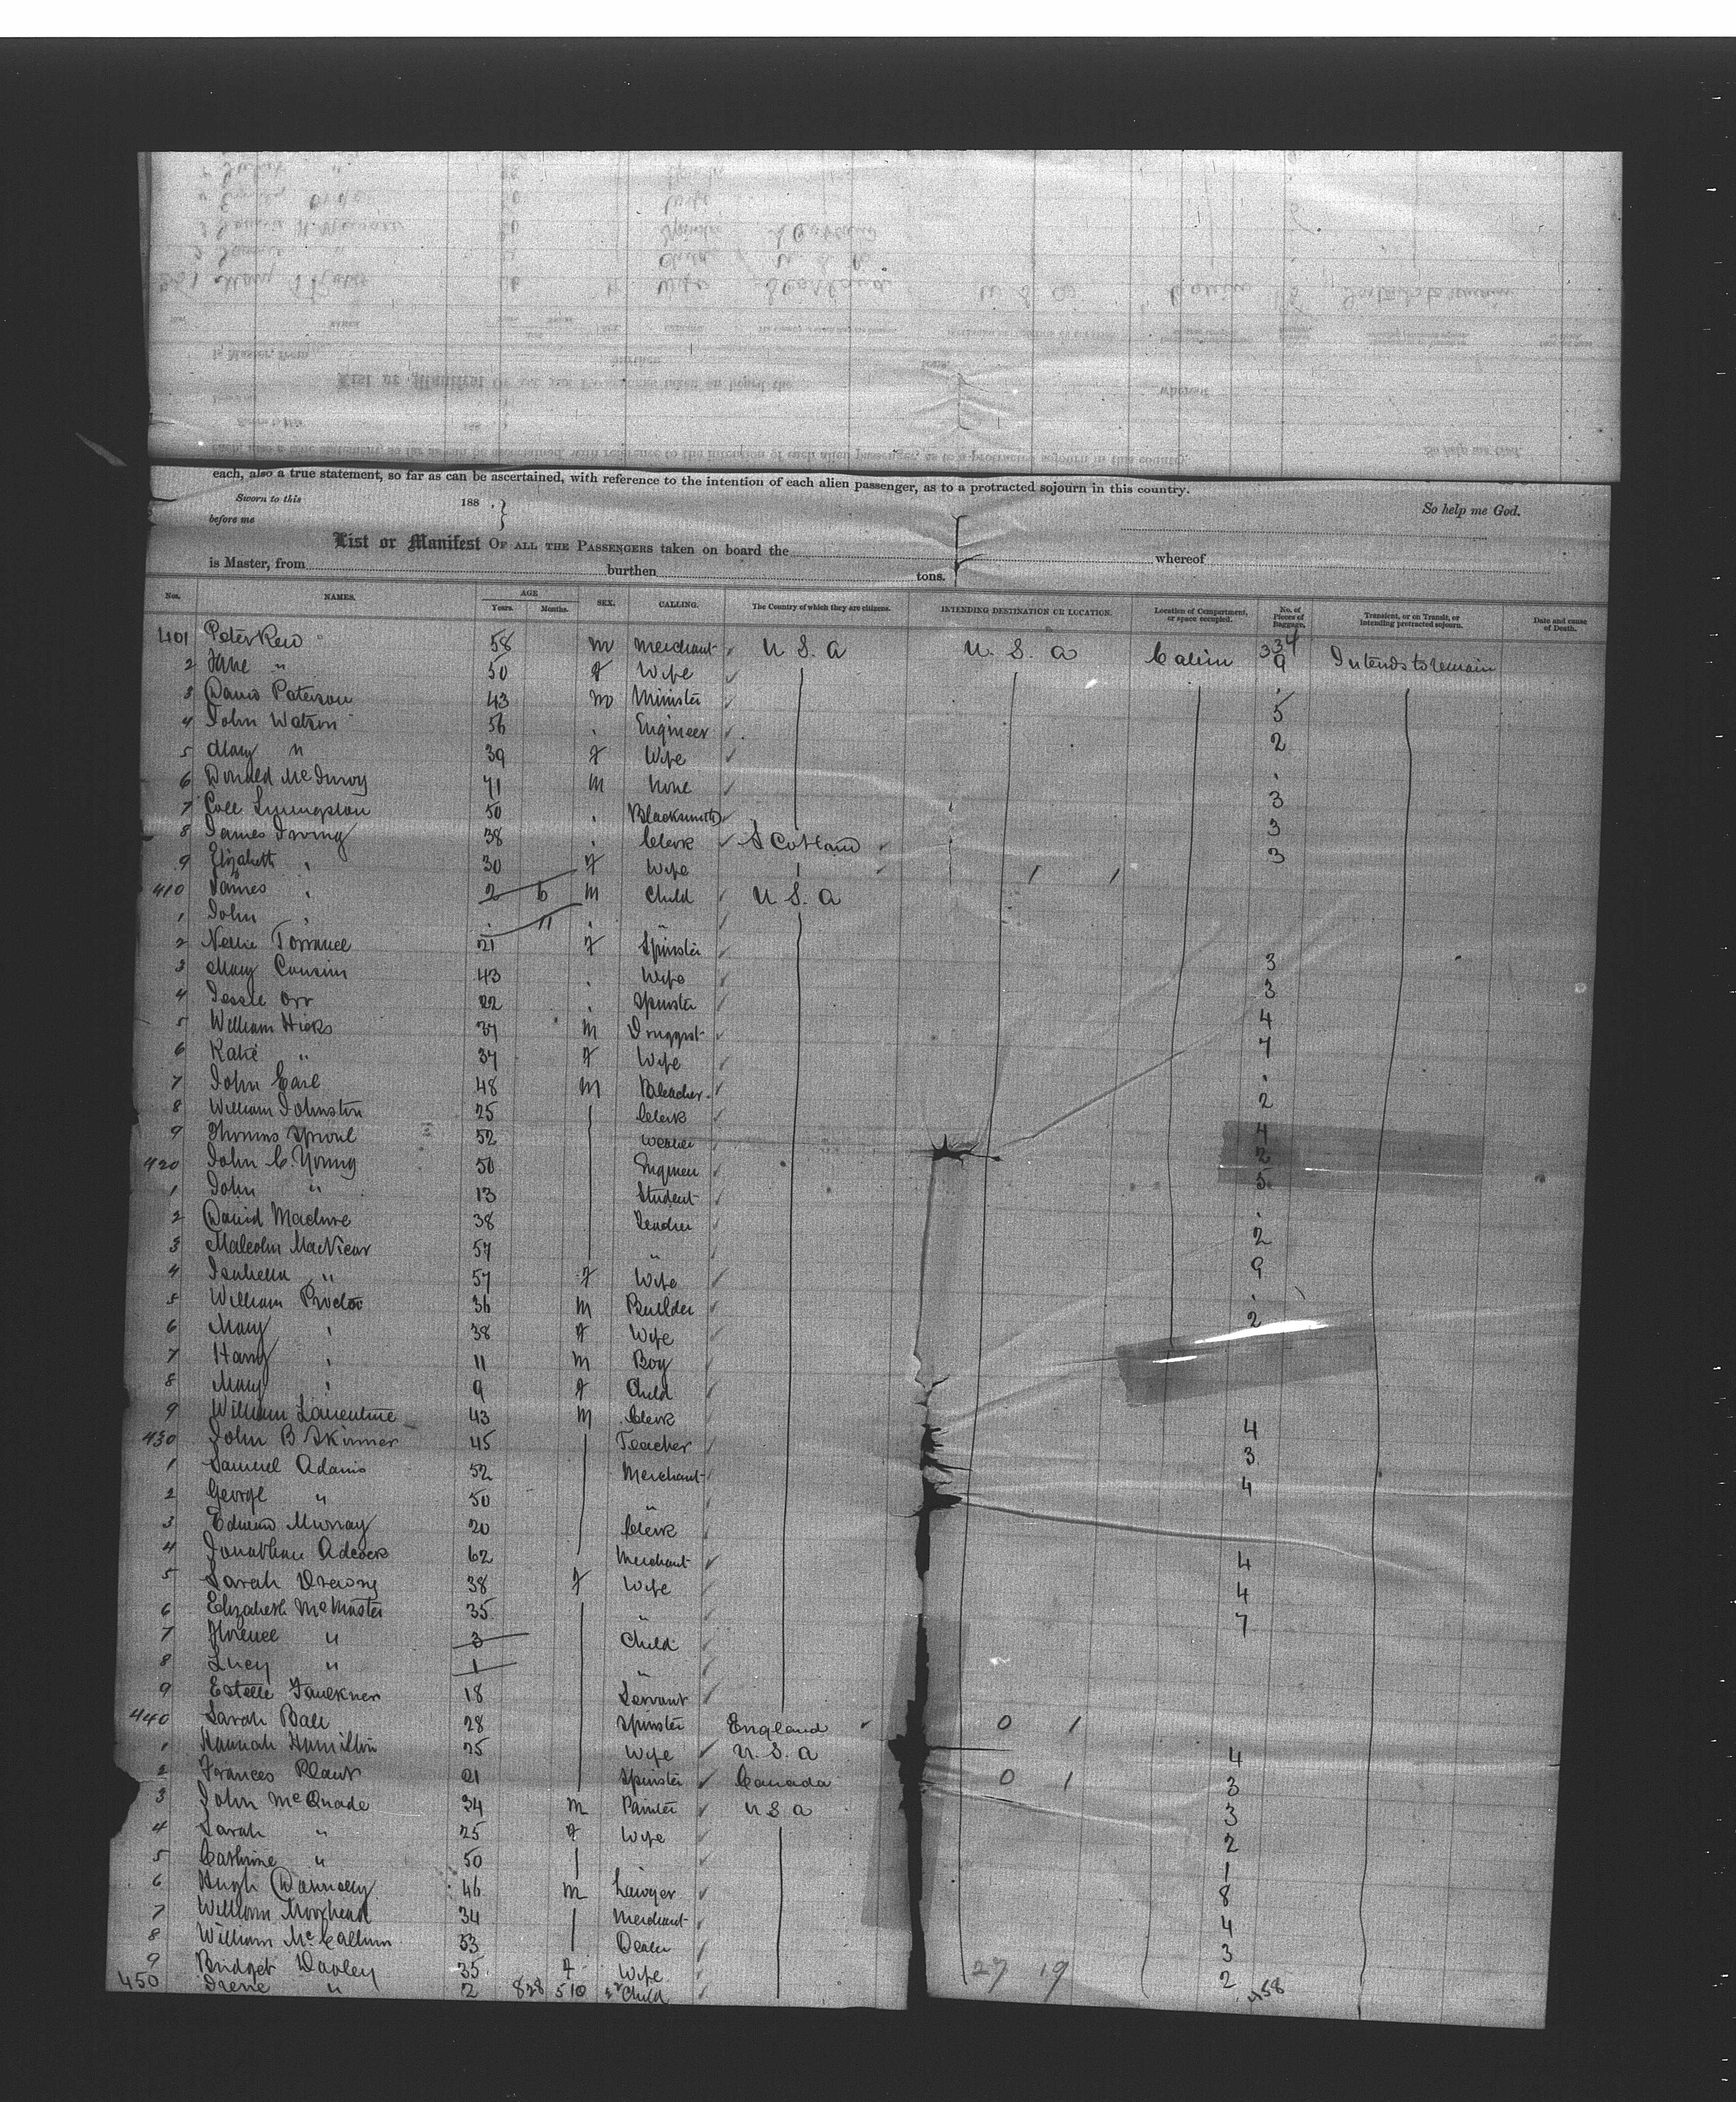 each, also a true statement, so far as can be ascertained, with reference to the intention of each alien passenger, as to a protracted sojourn in this country.
Sworn to this 188 . } So help me God.
before me
List or Manifest OF ALL THE PASSENGERS taken on board the whereof
is Master, from burthen tons.
Nos. NAMES. AGE Years. Months. SEX. CALLING. The Country of which they are citizens. INTENDING DESTINATION OR LOCATION. Location of Compartment, or space occupied. No. of Pieces of Baggage. Transient, or on Transit, or intending protracted sojourn. Date and cause of Death.
334
401 Peter 58 m Merchant U. S. A U. S. A Cabin 9 Intends to remain
2 Jane " 50 F Wife
3 David Paterson 43 m Minister 5
4 John Watson 56 . Engineer 2
5 Mary " 39 F Wife .
6 Donald 71 m None 3
7 Livingston 50 . Blacksmith 3
8 James Irving 38 . Clerk Scotland 3
9 Elizabeth " 30 F Wife
410 James " 2 6 m Child U. S. A
1 John " . 11 . "
2 Nellie Torrance 21 F Spinster 3
3 Mary Cousin 43 . Wife 3
4 Jessie Orr 22 . Spinster 4
5 William Hicks 37 m Druggist 7
6 Katie " 37 F Wife .
7 John Earl 48 m Bleacher 2
8 William Johnston 25 Clerk 4
9 Thomas Sproul 52 2
420 John C. Young 50 Engineer 5
1 John " 13 Student .
2 David Maclure 38 Teacher 2
3 Malcolm MacVicar 57 " 9
4 Isabella " 57 F Wife .
5 William Proctor 36 m Builder 2
6 Mary " 38 F Wife
7 Harry " 11 m Boy
8 Mary " 9 F Child
9 William 43 m Clerk 4
430 John B Skinner 45 Teacher 3
1 Samuel Adams 52 Merchant 4
2 George " 50 "
3 Edward Murray 20 Clerk 4
4 Jonathan Adcock 62 Merchant 4
5 Sarah 38 F Wife 7
6 Elizabeth McMaster 35 "
7 Florence " 3 Child
8 Lucy " 1 "
9 Estelle Faulkner 18 Servant
440 Sarah Ball 28 Spinster England 0 1
1 Hannah Hamilton 25 Wife U. S. A 4
2 Frances Plant 21 Spinster Canada 0 1 3
3 John McQuade 34 m Painter U S A 3
4 Sarah " 25 F Wife 2
5 Cathrine " 50 1
6 Hugh Donnelly 46 m Lawyer 8
7 William Moorhead 34 Merchant 4
8 William McCallum 53 Dealer 3
9 Bridget Dooley 35 F Wife 27 19 2
450 Irene " 2 828 510 Child 458